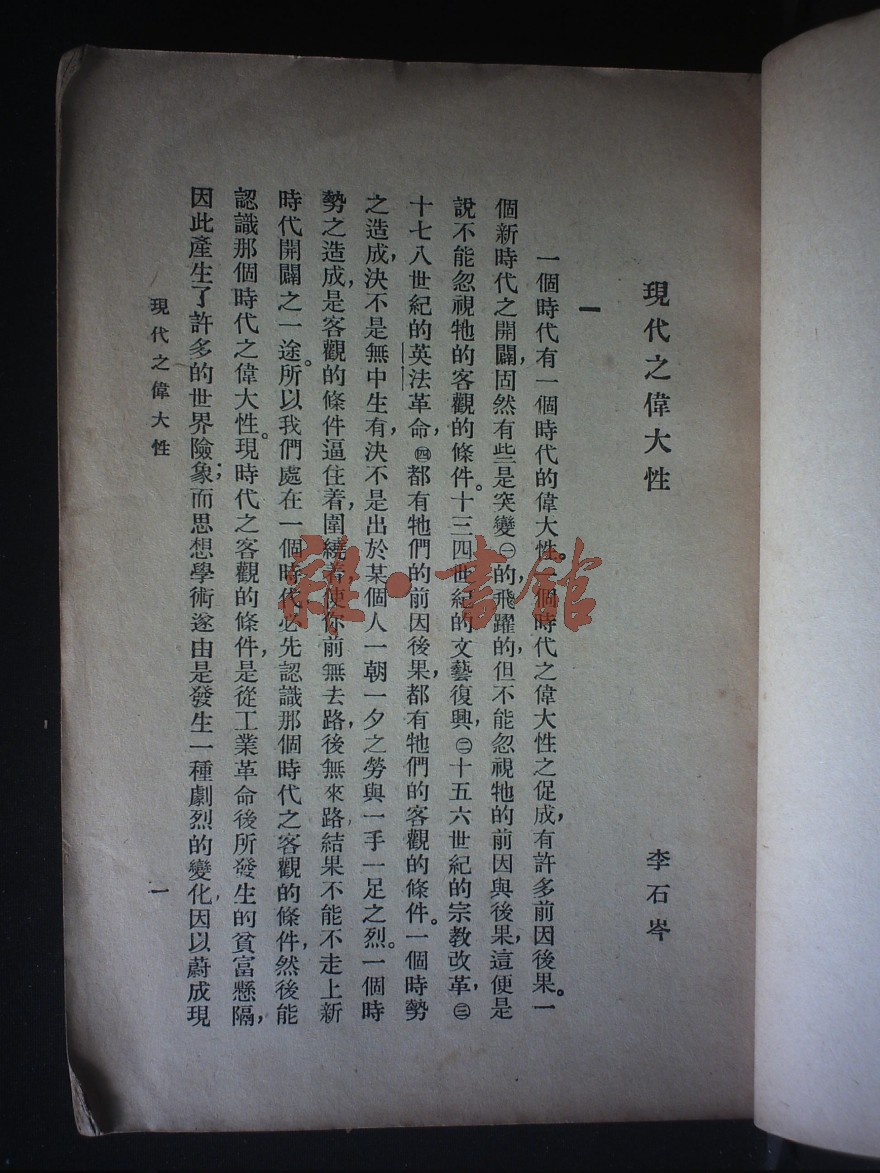 現代之偉大性
李石岑
一
一個時代有一個時代的偉大性。一個時代之偉大性之促成,有許多前因後果。一
個新時代之開闢,固然有些是突變㊀的,飛躍的,但不能忽視牠的前因與後果,這便是
說不能忽視牠的客觀的條件。十三四世紀的文藝復興,㊁十五六世紀的宗教改革,㊂
十七八世紀的英法革命,㊃都有牠們的前因後果,都有牠們的客觀的條件。一個時勢
之造成,決不是無中生有,決不是出於某個人一朝一夕之勞與一手一足之烈。一個時
勢之造成,是客觀的條件逼住着,圍繞着,使你前無去路,後無來路,結果不能不走上新
時代開闢之一途。所以我們處在一個時代,必先認識那個時代之客觀的條件,然後能
認識那個時代之偉大性。現時代之客觀的條件,是從工業革命後所發生的貧富懸隔,
因此產生了許多的世界險象;而思想學術遂由是發生一種劇烈的變化,因以蔚成現
現代之偉大性
一
雜·書館